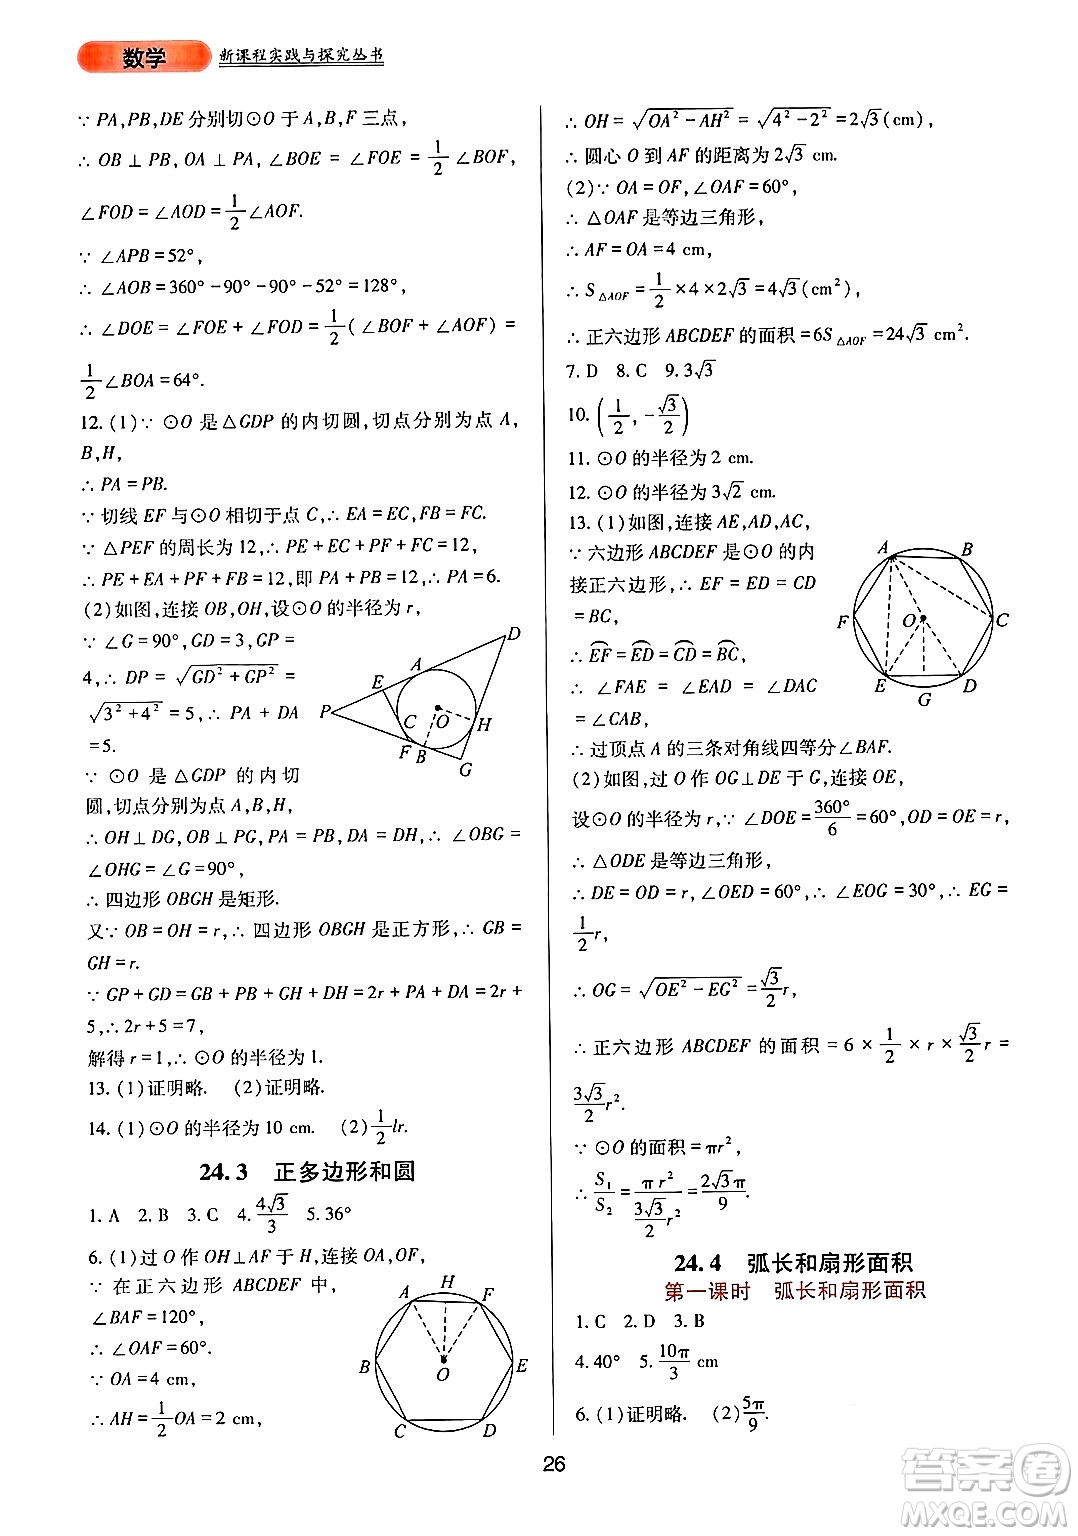 数学 新课程实践与探究丛书
∵ PA,PB,DE分别切⊙O于A,B,F三点,
∴ OB⊥PB,OA⊥PA,∠BOE=∠FOE=1/2∠BOF,
∠FOD=∠AOD=1/2∠AOF.
∵ ∠APB=52°,
∴ ∠AOB=360°-90°-90°-52°=128°,
∴ ∠DOE=∠FOE+∠FOD=1/2(∠BOF+∠AOF)=
1/2∠BOA=64°.
12. (1)∵ ⊙O是△GDP的内切圆,切点分别为A,
B,H,
∴ PA=PB.
∵ 切线EF与⊙O相切于点C,∴ EA=EC,FB=FC.
∵ △PEF的周长为12,∴ PE+EC+PF+FC=12,
∴ PE+EA+PF+FB=12,即PA+PB=12,∴ PA=6.
(2)如图,连接OB,OH,设⊙O的半径为r,
∵ ∠G=90°,GD=3,GP=
4,∴ DP=√(GD²+GP²)=
√(3²+4²)=5,∴ PA+DA
=5.
D
A
E
P
C
O
H
F
B
G
∵ ⊙O是△GDP的内切
圆,切点分别为A,B,H,
∴ OH⊥DG,OB⊥PG,PA=PB,DA=DH,∴ ∠OBG=
∠OHG=∠G=90°,
∴ 四边形OBGH是矩形.
又∵ OB=OH=r,∴ 四边形OBGH是正方形,∴ GB=
GH=r.
∵ GP+GD=GB+PB+GH+DH=2r+PA+DA=2r+
5,∴ 2r+5=7,
解得r=1,∴ ⊙O的半径为1.
13. (1)证明略. (2)证明略.
14. (1)⊙O的半径为10 cm. (2)1/2lr.
24.3 正多边形和圆
1. A 2. B 3. C 4. 4√3/3 5. 36°
6. (1)过O作OH⊥AF于H,连接OA,OF,
∵ 在正六边形ABCDEF中,
∠BAF=120°,
∴ ∠OAF=60°.
∵ OA=4 cm,
∴ AH=1/2OA=2 cm,
H
A
F
B
E
O
C
D
∴ OH=√(OA²-AH²)=√(4²-2²)=2√3(cm),
∴ 圆心O到AF的距离为2√3 cm.
(2)∵ OA=OF,∠OAF=60°,
∴ △OAF是等边三角形,
∴ AF=OA=4 cm,
∴ S△AOF=1/2×4×2√3=4√3(cm²),
∴ 正六边形ABCDEF的面积=6S△AOF=24√3 cm².
7. D 8. C 9. 3√3
10. (1/2,-√3/2)
11. ⊙O的半径为2 cm.
12. ⊙O的半径为3√2 cm.
13. (1)如图,连接AE,AD,AC,
∵ 六边形ABCDEF是⊙O的内
接正六边形,∴ EF=ED=CD
=BC,
∴ ⌒EF=⌒ED=⌒CD=⌒BC,
∴ ∠FAE=∠EAD=∠DAC
=∠CAB,
A
B
F
O
C
E
G
D
∴ 过顶点A的三条对角线四等分∠BAF.
(2)如图,过O作OG⊥DE于G,连接OE,
设⊙O的半径为r,∵ ∠DOE=360°/6=60°,OD=OE=r,
∴ △ODE是等边三角形,
∴ DE=OD=r,∠OED=60°,∴ ∠EOG=30°,∴ EG=
1/2r,
∴ OG=√(OE²-EG²)=√3/2r,
∴ 正六边形ABCDEF的面积=6×1/2×r×√3/2r=
3√3/2r².
∵ ⊙O的面积=πr²,
∴ S₁/S₂=πr²/(3√3/2r²)=2√3π/9.
24.4 弧长和扇形面积
第一课时 弧长和扇形面积
1. C 2. D 3. B
4. 40° 5. 10π/3 cm
6. (1)证明略. (2)5π/9.
26
答案圈
MXQE.COM